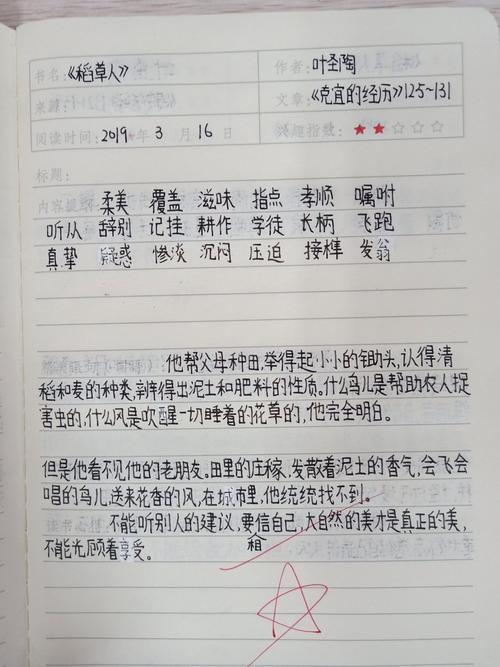 书名:《稻草人》 作者: 叶圣陶
来源: 文章:《克宜的经历》125~131
阅读时间: 2019 年 3 月 16 日 兴趣指数: ★★☆☆☆
标题:
内容提要: 柔美 覆盖 滋味 指点 孝顺 嘱咐
听从 辞别 记挂 耕作 学徒 长柄 飞跑
真挚 疑惑 惨淡 沉闷 压迫 接榫 发翁
他帮父母种田,举得起小小的锄头,认得清
稻和麦的种类,辨得出泥土和肥料的性质。什么鸟儿是帮助农人捉
害虫的,什么风是吹醒一切睡着的花草的,他完全明白。
但是他看不见他的老朋友。田里的庄稼,发散着泥土的香气,会飞会
唱的鸟儿,送来花香的风,在城市里,他统统找不到。
不能听别人的建议,要相信自己,大自然的美才是真正的美,
不能光顾着享受。